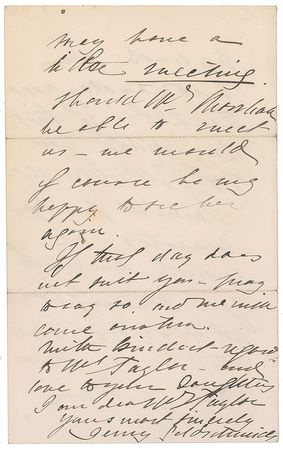 may have a
little meeting.
Should Mrs
be able to meet
us - we would
of course be very
happy to see her
again.
If that day does
not suit you - pray
to say so, and we will
come another.
With kindest regards
to Mr Taylor - and
love to your daughters
I am dear Mrs Taylor
Yours most sincerely
Jenny Goldschmidt